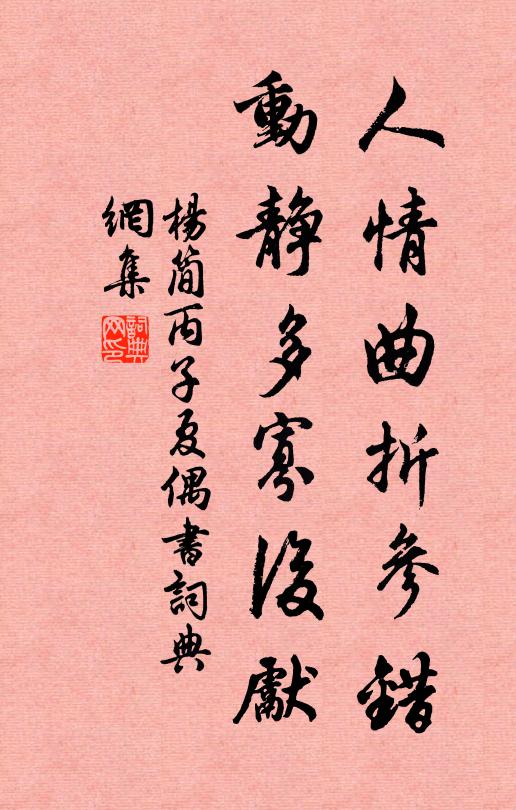 人情曲折參錯
動靜多寡後獻
楊簡丙子夏偶書詞典
網集
詞典
網印